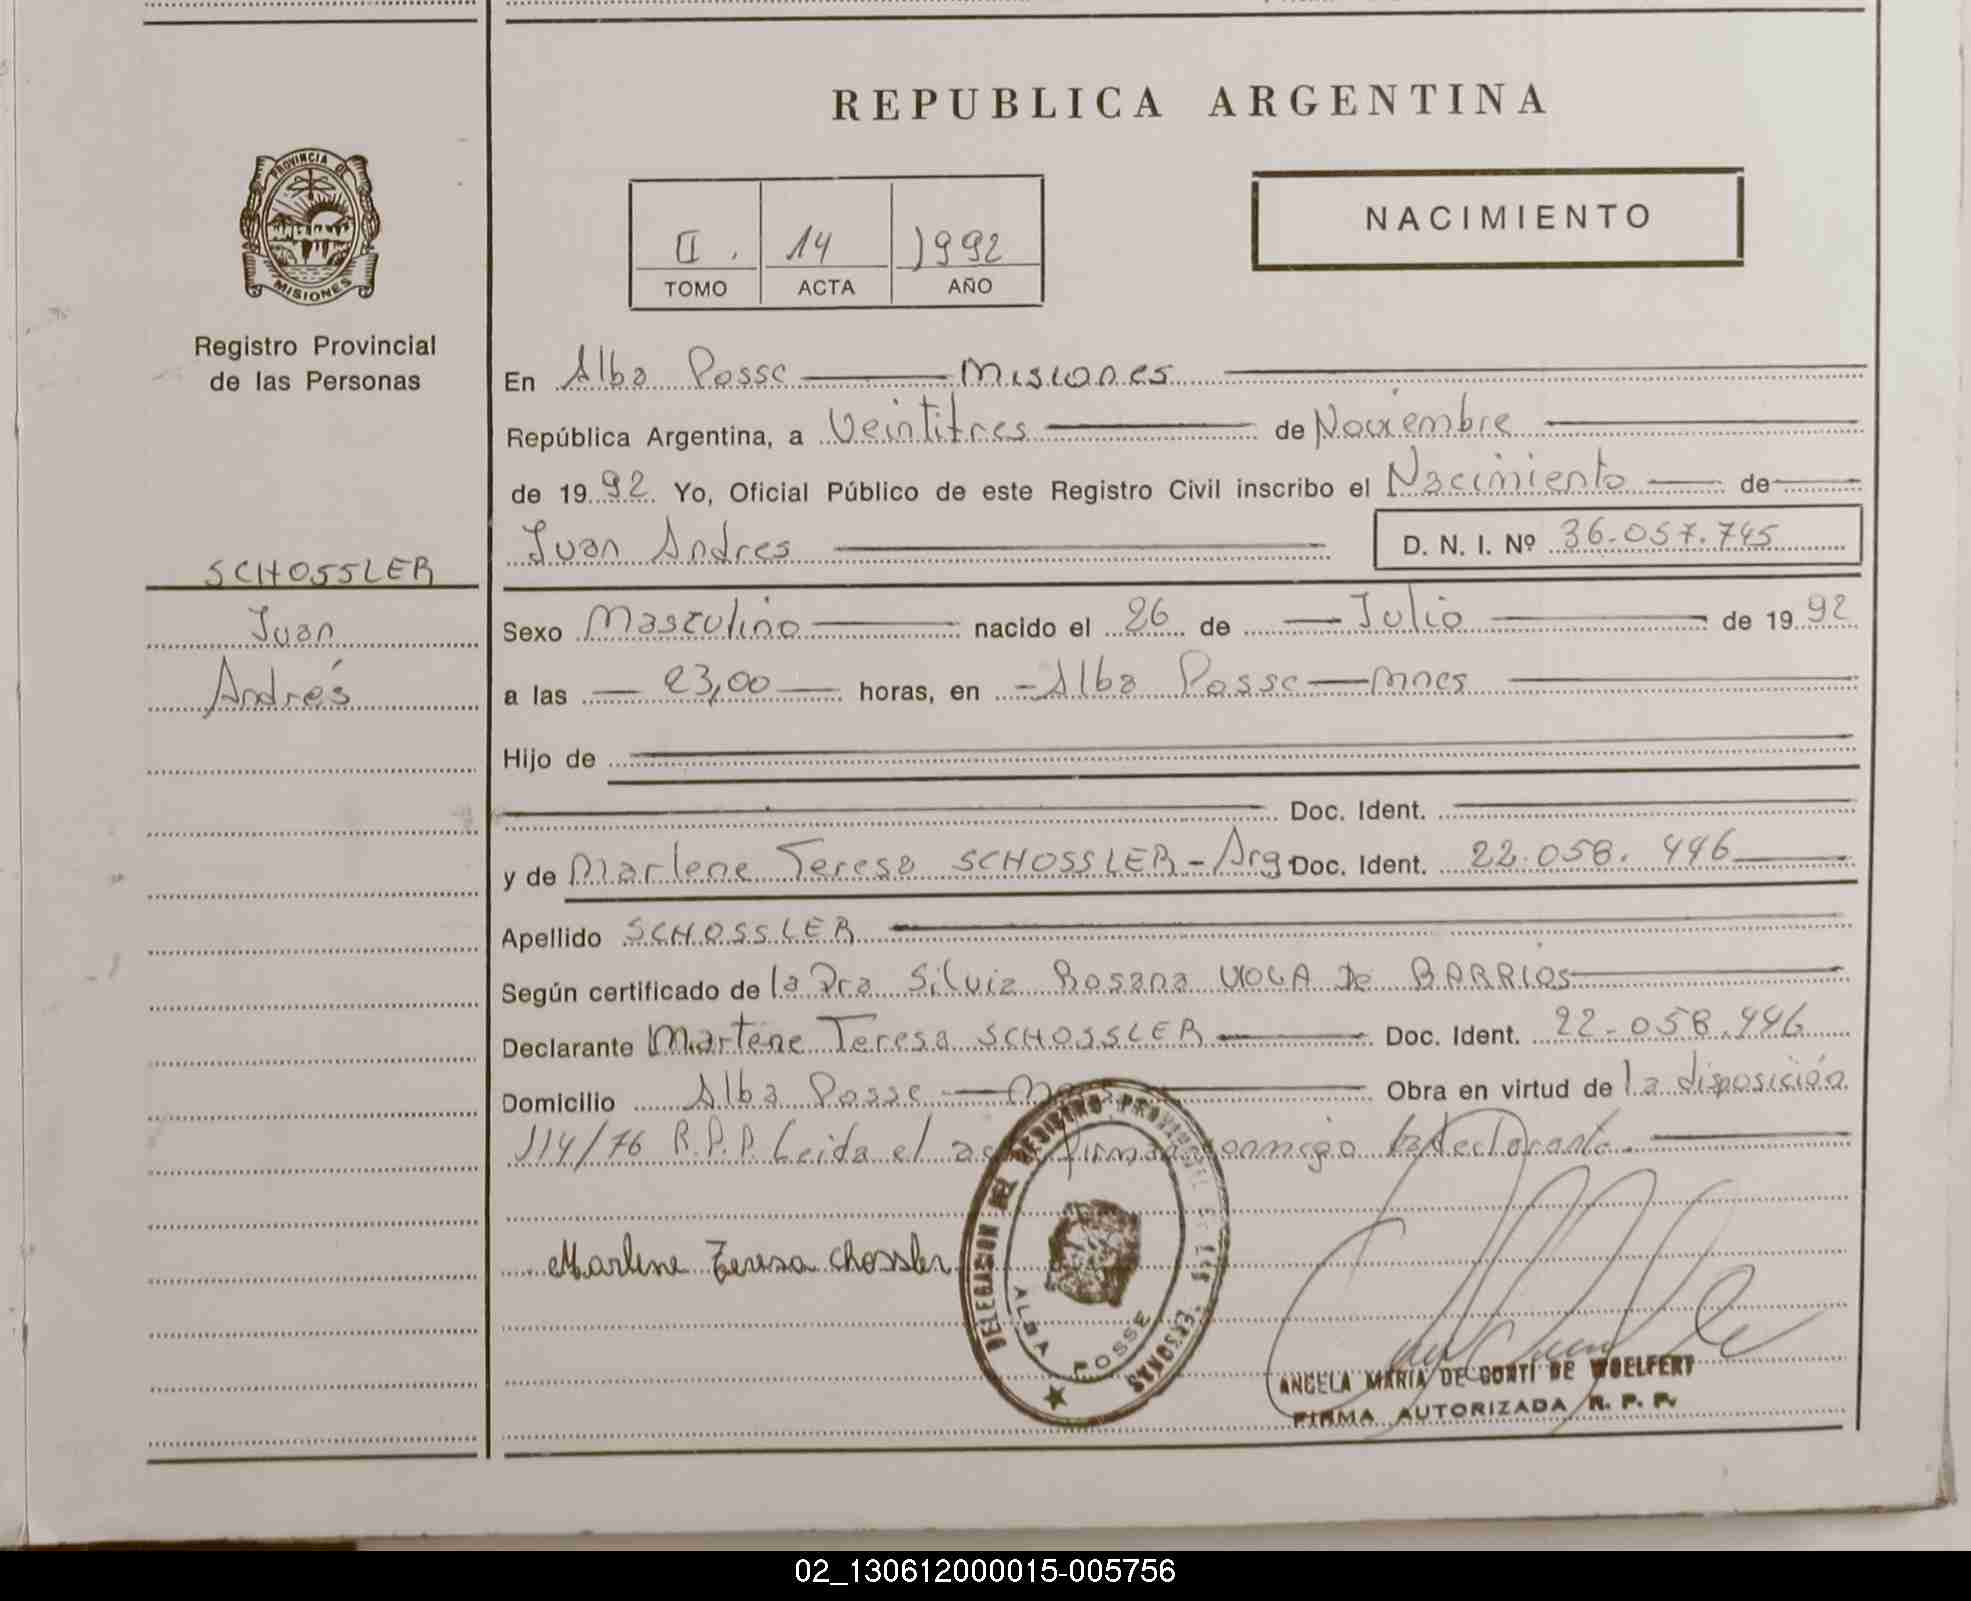 REPUBLICA ARGENTINA
PROVINCIA DE
MISIONES
Registro Provincial
de las Personas
SCHOSSLER
Juan
Andrés
II. 14 1992
TOMO ACTA AÑO
NACIMIENTO
En Alba Posse Misiones
República Argentina, a Veintitres de Noviembre
de 1992 Yo, Oficial Público de este Registro Civil inscribo el Nacimiento de
Juan Andres D. N. I. Nº 36.057.745
Sexo Masculino nacido el 26 de Julio de 1992
a las 23,00 horas, en Alba Posse Mnes
Hijo de
Doc. Ident.
y de Marlene Teresa SCHOSSLER - Arg Doc. Ident. 22.058.446
Apellido SCHOSSLER
Según certificado de la Dra Silvia Rosana de BARRIOS
Declarante Marlene Teresa SCHOSSLER Doc. Ident. 22.058.446
Domicilio Alba Posse Obra en virtud de la disposición
114/76 R.P.P. Leida el firman conmigo la declarante
Marlene Teresa Chossler
DELEGACION DEL REGISTRO PROVINCIAL DE LAS PERSONAS
ALBA POSSE
ANGELA MARIA DE CONTI DE WOELFERT
FIRMA AUTORIZADA R. P. P.
02_130612000015-005756